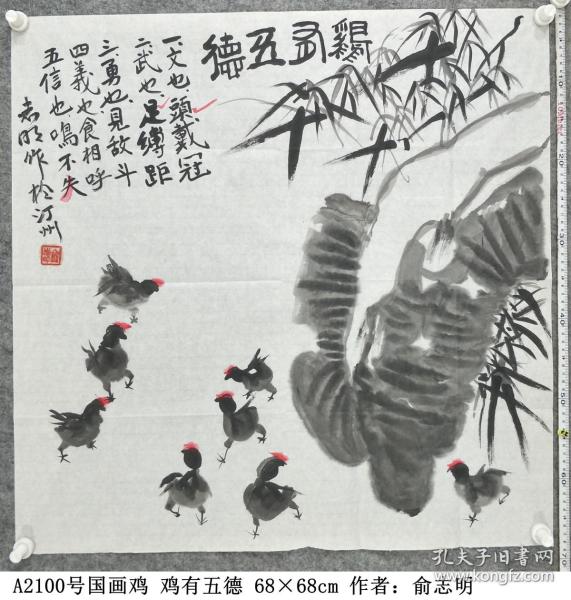 鷄有五德
一文也頭戴冠
二武也足縛距
三勇也見敌斗
四義也食相呼
五信也鳴不失
志明作於汀州
孔夫子旧书网
www.kongfz.com
A2100号国画鸡 鸡有五德 68×68cm 作者：俞志明